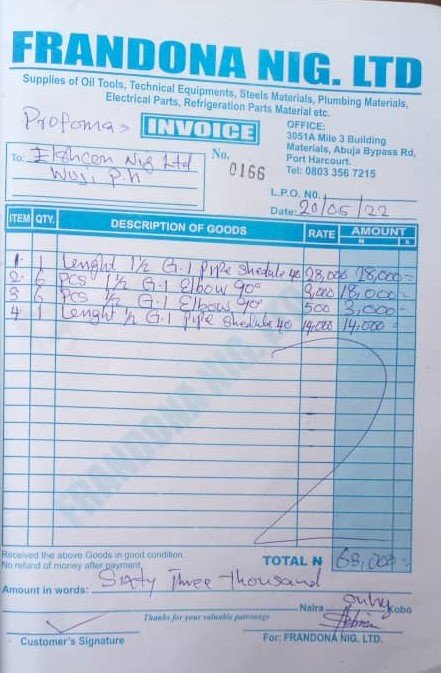 FRANDONA NIG. LTD
Supplies of Oil Tools, Technical Equipments, Steels Materials, Plumbing Materials,
Electrical Parts, Refrigeration Parts Material etc.
Profoma's INVOICE
OFFICE:
3051A Mile 3 Building
Materials, Abuja Bypass Rd,
Port Harcourt.
Tel: 0803 356 7215
To: Elshcon Nig Ltd
Woji P.H
No. 0166
L.P.O. NO.
Date: 20/05/22
ITEM QTY. DESCRIPTION OF GOODS RATE AMOUNT
N K
1 1 Lenght 1½ G.I Pipe Shedule 40 28,000 28,000=
2 6 Pcs 1½ G.I Elbow 90° 3,000 18,000=
3 6 Pcs ½ G.I Elbow 90° 500 3,000=
4 1 Lenght ½ G.I Pipe Shedule 40 14,000 14,000
FRANDONA NIG. LTD
Received the above Goods in good condition.
No refund of money after payment
TOTAL N 63,000=
Amount in words: Sixty Three Thousand
Naira only Kobo
Thanks for your valuable patronage
Customer's Signature
For: FRANDONA NIG. LTD.